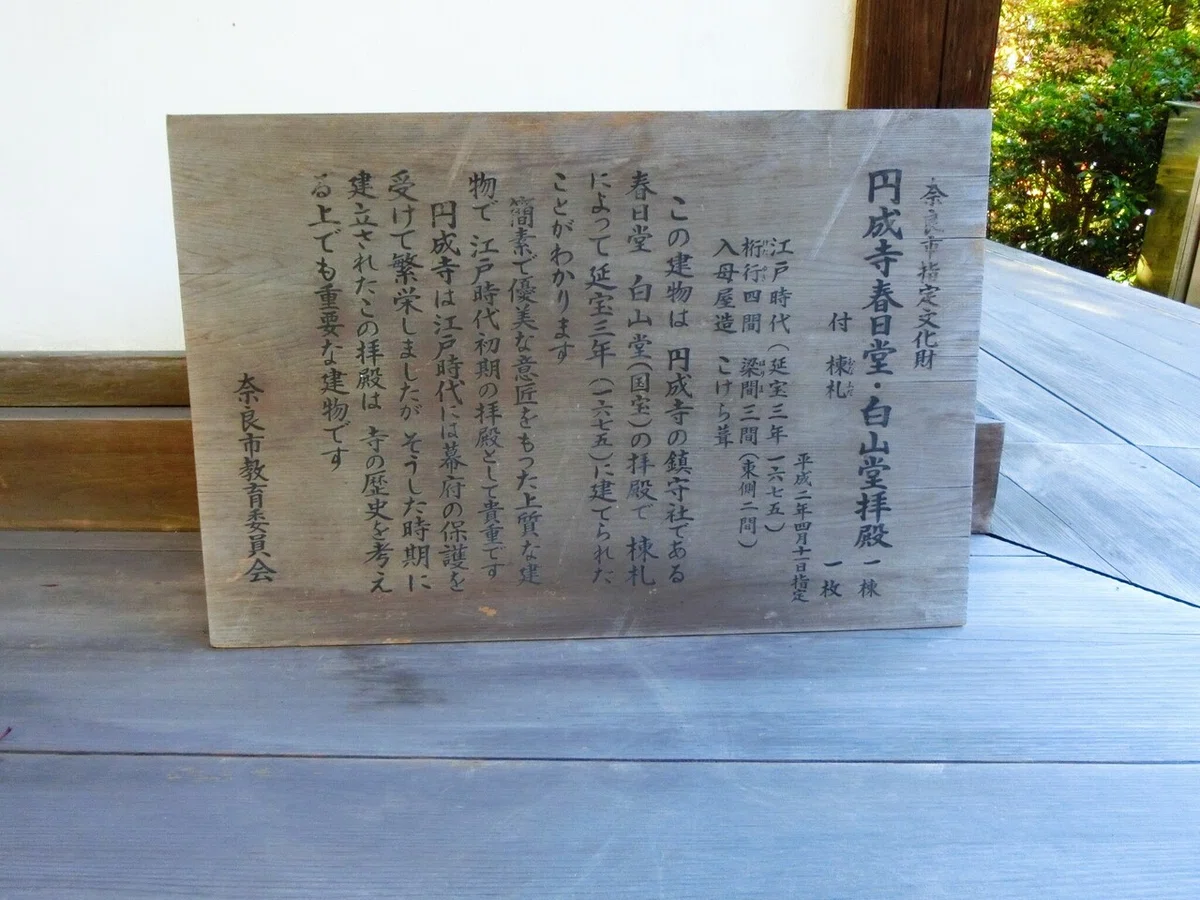 奈良市指定文化財
円成寺春日堂・白山堂拝殿 一棟
付 棟札 一枚
平成二年四月十一日指定
江戸時代(延宝三年 一六七五)
桁行四間 梁間三間(東側二間)
入母屋造 こけら葺
この建物は 円成寺の鎮守社である
春日堂 白山堂(国宝)の拝殿で 棟札
によって延宝三年(一六七五)に建てられた
ことがわかります
簡素で優美な意匠をもつた上質な建
物で 江戸時代初期の拝殿として貴重です
円成寺は江戸時代には幕府の保護を
受けて繁栄しましたが そうした時期に
建立されたこの拝殿は 寺の歴史を考え
る上でも重要な建物です
奈良市教育委員会